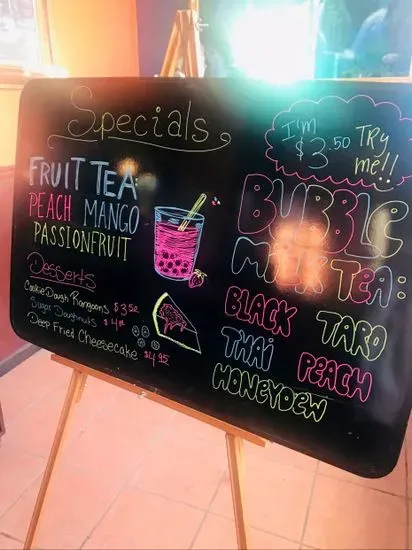 Specials
FRUIT TEA
PEACH MANGO
PASSIONFRUIT
Desserts
Cookie Dough Rangoons $3.50
Sugar Doughnuts $4
Deep Fried Cheesecake $4.95
I'm
$3.50 Try
me!!
BUBBLE
MILK TEA:
BLACK TARO
THAI PEACH
HONEYDEW